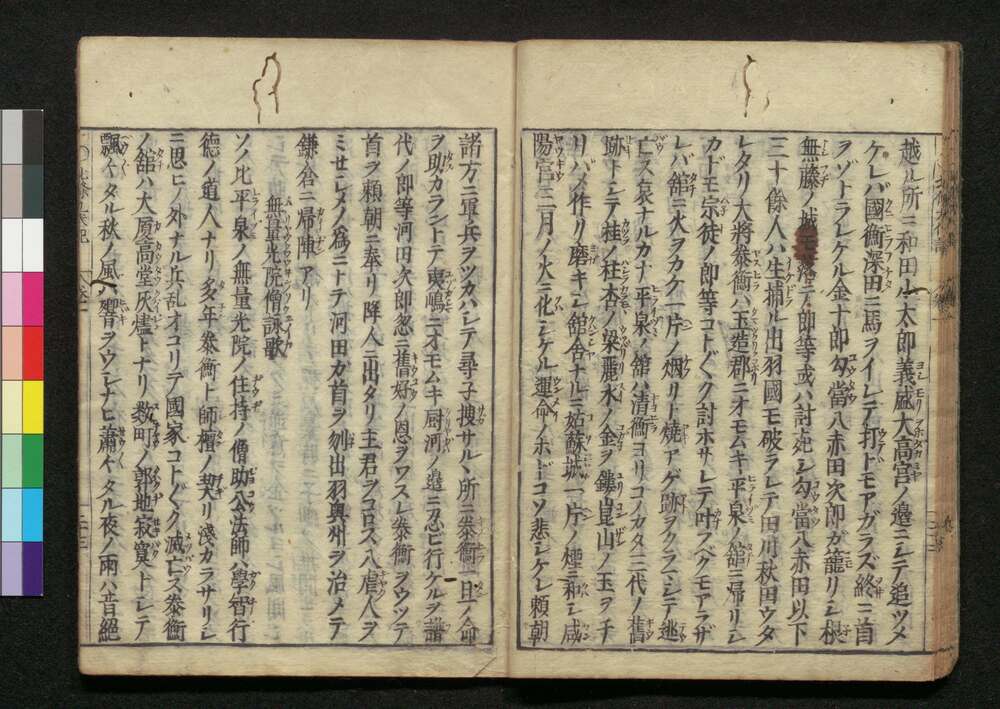 越ル所ニ和田小太郎義盛大高宮ノ邊ニシテ追ツメ
ケレバ國衡深田ニ馬ヲイレテ打トモアガラズ終ニ首
ヲゾトラレケル金十郎勾當八赤田次郎が籠リシ根
無藤ノ城モ落テ郎等或ハ討死シ勾當八赤田以下
三十餘人ハ生捕ル出羽國モ破ラレテ田川秋田ウタ
レタリ大將泰衡ハ玉造郡ニオモムキ平泉ノ舘ニ帰リシ
カドモ宗徒ノ郎等コトぐク討ホサレテ叶フベクモアラザ
レバ舘ニ火ヲカケ一片ノ烟リト焼アゲ跡ヲクラマシテ逃
亡ス哀ナルカナ平泉ノ舘ハ清衡ヨリコノカタ三代ノ舊
跡トシテ桂ノ柱杏ノ梁麗水ノ金ヲ鏤崑山ノ玉ヲチ
リバメ作リ磨キシ舘舎ナルニ姑蘇城一片ノ煙ニ和シ咸
陽宮三月ノ火ニ化シケル運命ノホドコソ悲シケレ頼朝
諸方ニ軍兵ヲツカハシテ尋子捜サルヽ所ニ泰衡一旦ノ命
ヲ助カラントテ夷嶋ニオモムキ厨河ノ邊ニ忍ビ行ケルヲ譜
代ノ郎等河田次郎忽ニ舊好ノ恩ヲワスレ泰衡ヲウツテ
首ヲ頼朝ニ奉リ降人ニ出タリ主君ヲコロス八虐人ヲ
ミセシメノ為ニトテ河田ガ首ヲ刎出羽奥州ヲ治メテ
鎌倉ニ帰陣アリ
無量光院僧詠歌
ソノ比平泉ノ無量光院ノ住持ノ僧助公法師ハ學智行
德ノ道人ナリ多年泰衡ト師檀ノ契リ淺カラサリシ
ニ思ヒノ外ナル兵乱オコリテ國家コトぐク滅亡ス泰衡
ノ舘ハ大厦高堂灰燼トナリ数町ノ郭地寂寞トシテ
飄々タル秋ノ風ハ響ヲウシナヒ蕭々タル夜ノ雨ハ音絕